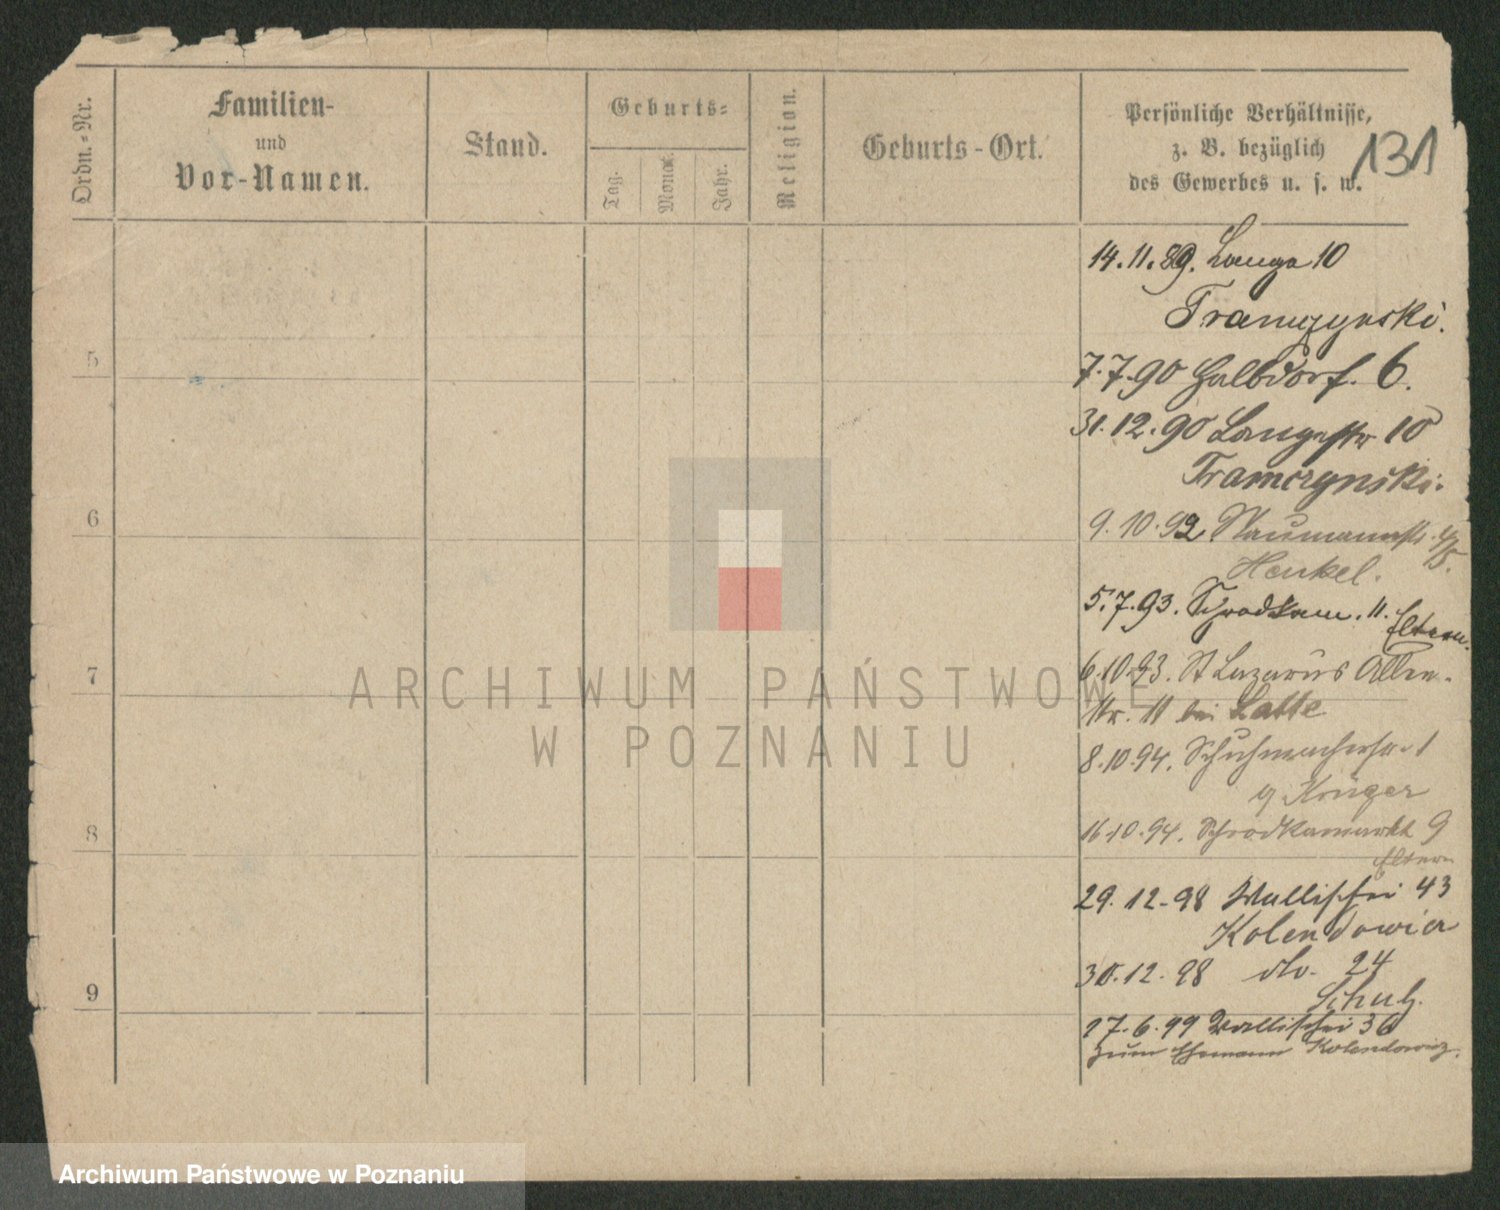 Ordn.-Nr.
Familien-
und
Vor-Namen.
Stand.
Geburts-
Tag.
Monat.
Jahr.
Religion.
Geburts-Ort.
Persönliche Verhältnisse,
z. B. bezüglich
des Gewerbes u. s. w.
131
14.11.89. Lange 10
Tramczynski.
7.7.90 Halbdorf. 6.
31.12.90 Langestr 10
Tramczynski.
9.10.92 Naumannstr. 4/5.
Henkel.
5.7.93. Schrodkam. 11. Eltern.
6.10.93. St Lazarus Allen-
str. 11 bei Latte
8.10.94. Schuhmacherstr. 1
Krüger
16.10.94. Schrodkamarkt 9
Eltern
29.12.98 Wallischei 43
Kolendowicz
30.12.98 do. 24
Schulz.
17.6.99 Wallischei 36
zum Ehemann Kolendowicz.
5
6
7
8
9
ARCHIWUM PAŃSTWOWE
W POZNANIU
Archiwum Państwowe w Poznaniu